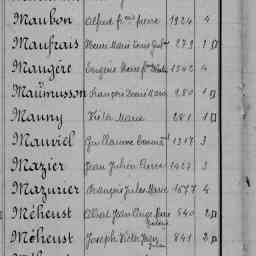 Maubon Alfred fçois pierre 1924 4
Maufrais Pierre Marie Louis 279 1
Maugère Eugène Pierre 1542 4
Maumusson François Désiré Marie 280 1
Mauny Victor Marie 281 1
Mauviel Guillaume bonnet 1317 3
Mazier Jean Julien Pierre 1427 3
Mazurier François Jules Marie 1677 4
Méheust Albert Jean Ange Marie 840 2
Méheust Joseph Victor 841 2